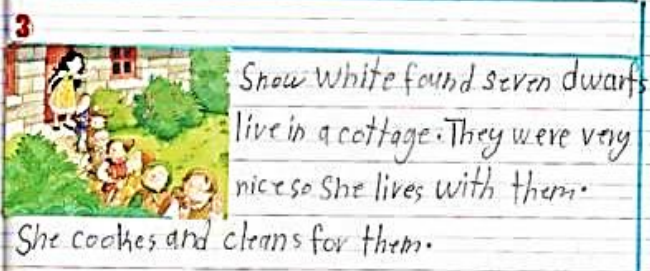 3
Snow White found seven dwarfs
live in a cottage. They were very
nice so She lives with them.
She cookes and cleans for them.